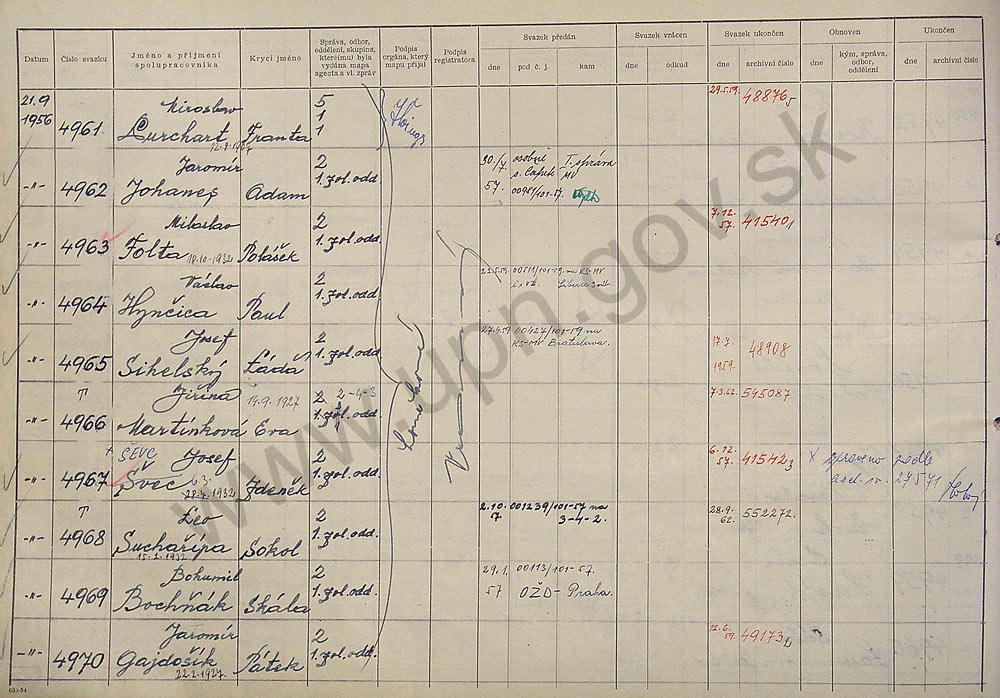 Datum Číslo svazku Jméno a příjmení spolupracovníka Krycí jméno Správa, odbor, oddělení, skupina, které(mu) byla vydána mapa agenta a vl. zpráv Podpis orgána, který mapu přijal Podpis registratora Svazek předán Svazek vrácen Svazek ukončen Obnoven Ukončen
dne pod č. j. kam dne odkud dne archivní číslo dne kým, správa, odbor, oddělení dne archivní číslo
21.9 1956 4961 Miroslav 5 1 1 29.5.59. 48876
Lurchart Franta
-"- 4962 Jaromír 2 30./7. 57. osobně s. Čapek I. správa MV
Johanes Adam 1. zol. odd. 00981/101-57.
-"- 4963 Miloslav 2 7.12. 57. 41540
Folta 18.10.1932 Polášek 1. zol. odd.
-"- 4964 Václav 2 00511/101-59. na KS-MV
Hynčica Paul 1. zol. odd. Liberec
-"- 4965 Josef 2 27.4.59 00427/101-59 na KS-MV Bratislava. 1959. 48908
Sihelský Láďa 1. zol. odd.
-"- T 4966 Jiřina 14.9.1927 2 2-4-3 7.3.62. 545087
Martinková Eva 1. zol. odd.
-"- x ŠEVC 4967 Josef 2 6.12. 57. 41542 3 x opraveno podle
Švec 1932 Zdeněk 1. zol. odd. 27571
-"- T 4968 Leo 2 2.10. 57 001239/101-57 na 3-4-2. 28.9. 62. 552272.
Suchařípa 15.2.1932 Sokol 1. zol. odd.
-"- 4969 Bohumil 2 29.1. 57 00113/101-57. OŽD-Praha.
Bochňák Skála 1. zol. odd.
-"- 4970 Jaromír 2 12.6. 59. 49173
Gajdošík 22.2.1927. Pátek 1. zol. odd.
www.upn.gov.sk